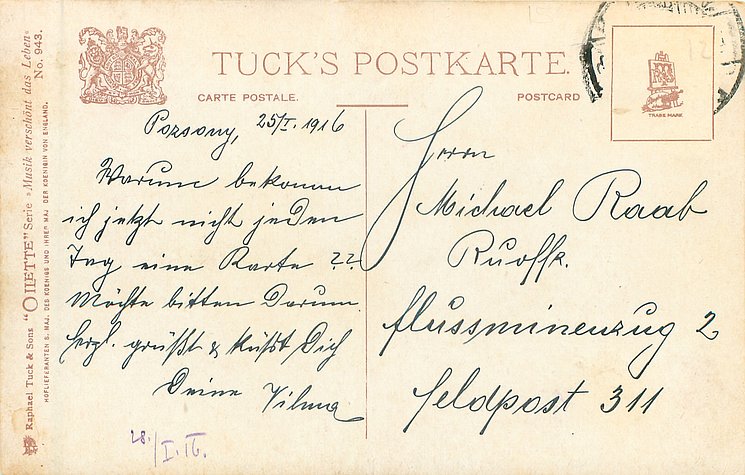 TUCK'S POSTKARTE.
CARTE POSTALE.
POSTCARD
TRADE MARK
Raphael Tuck & Sons "OILETTE" Serie »Musik verschönt das Leben« No. 943.
HOFLIEFERANTEN S. MAJ. DES KOENIGS UND IHRER MAJ. DER KOENIGIN VON ENGLAND.
Pozsony, 25/I. 1916
Warum bekomm
ich jetzt nicht jeden
Tag eine Karte ??
Möchte bitten Darum.
Hrzl. grüßt & küsst Dich
Deine Vilma
28./I.16.
Herrn
Michael Raab
flussminenzug 2
feldpost 311